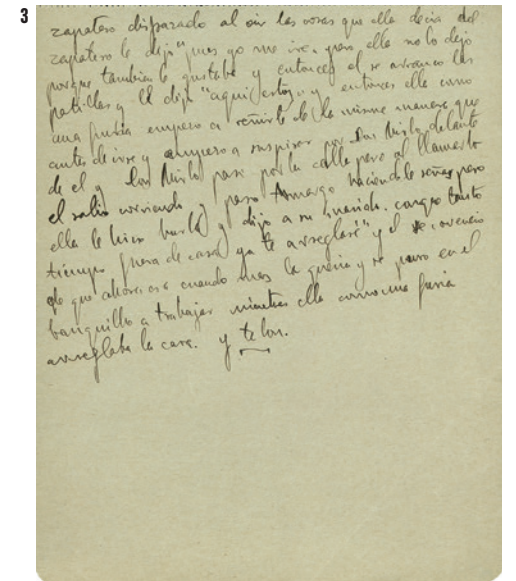 3
zapatero disparado al oir las cosas que ella decia del
zapatero le dijo "pues yo me ire. pero ella no lo dejo
porque tambien le gustaba y entonces el se arranco las
patillas y le dijo "aqui estoy" y entonces ella como
una furia empezo a reñirle de la misma manera que
antes de irse y empezo a suspirar por Don Mirlo delante
de el y Don Mirlo paso por la calle pero al llamarlo
el salio corriendo y paso Amargo haciendole señas pero
ella le hizo burla y dijo a su marido. conque tanto
tiempo fuera de casa ya te arreglaré" y el se convencio
de que ahora era cuando mas la queria y se puso en el
banquillo a trabajar mientras ella como una furia
arreglaba la casa. y telon.